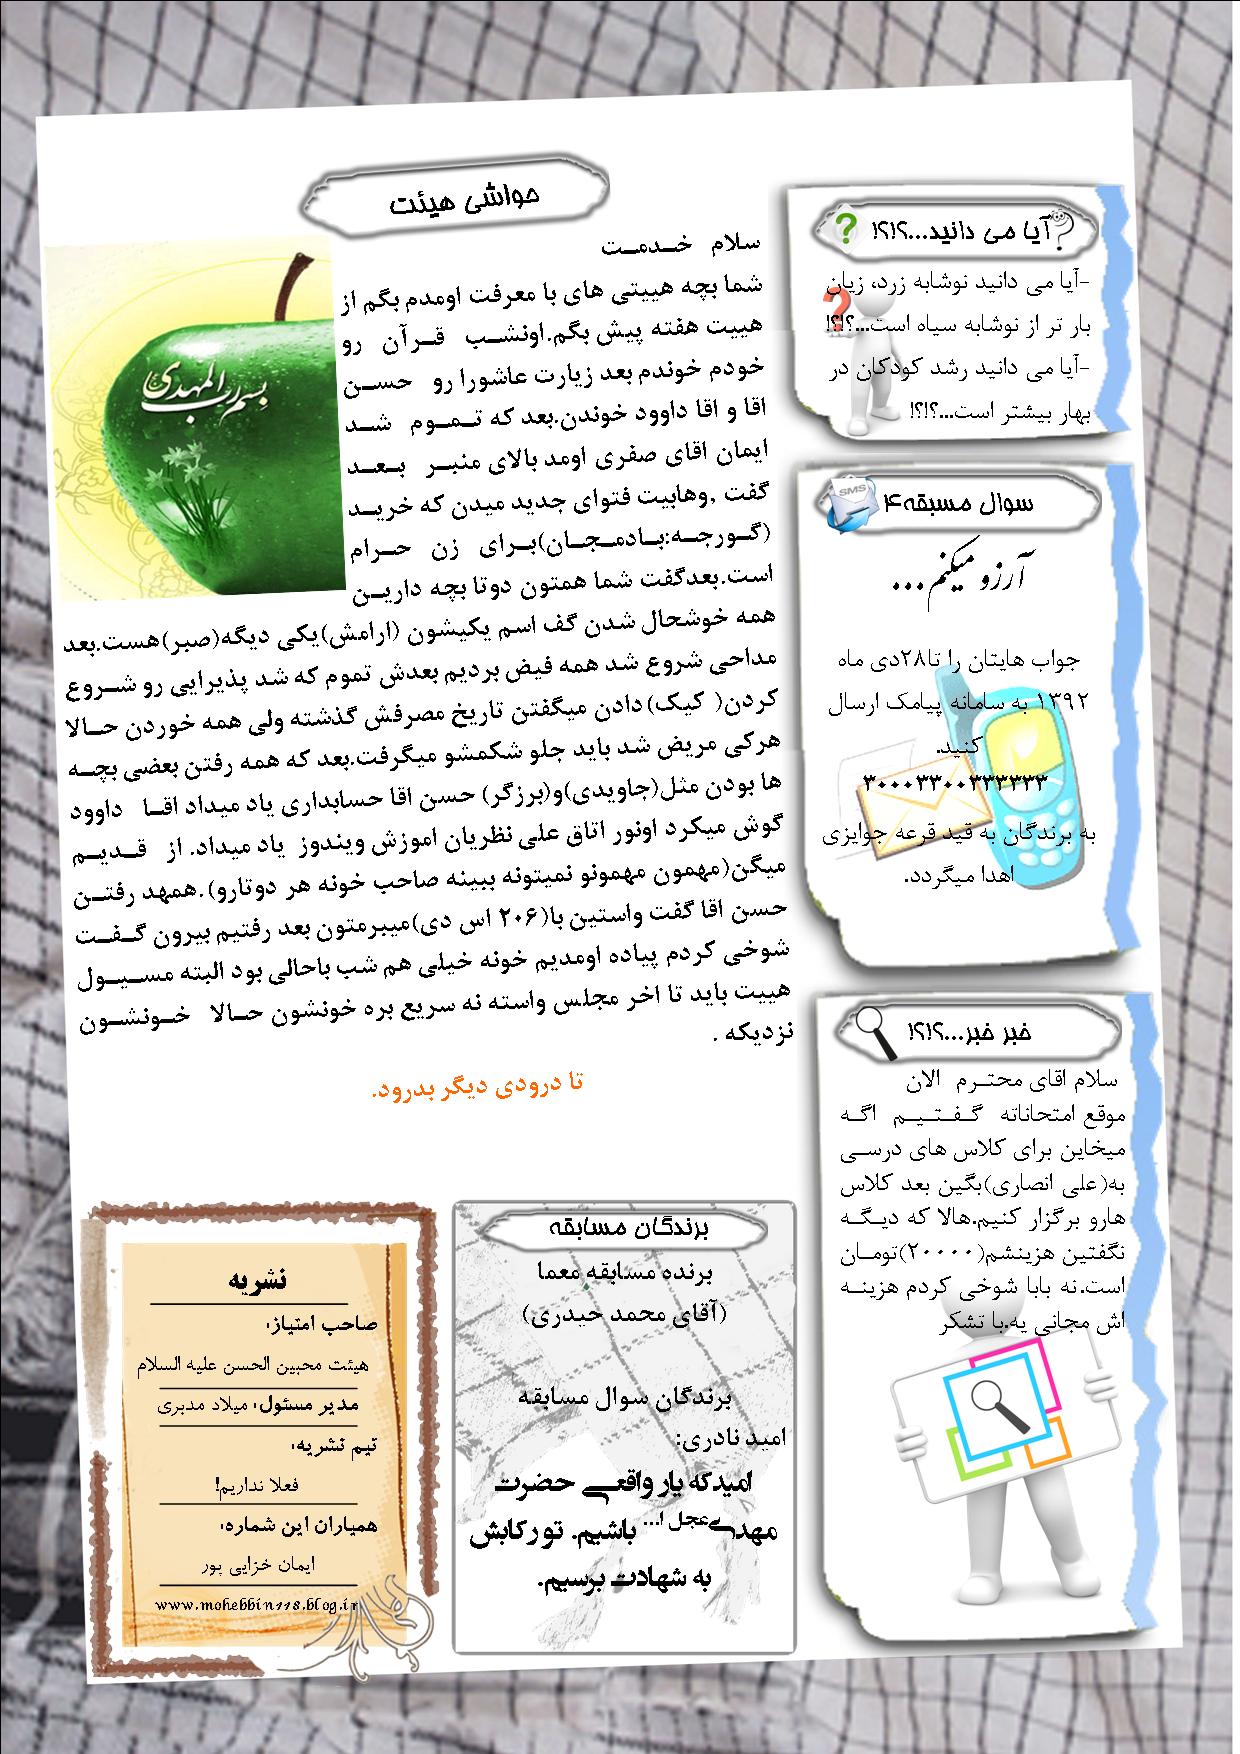 حواشی هیئت
سلام خدمت
شما بچه هییتی های با معرفت اومدم بگم از
هییت هفته پیش بگم.اونشب قرآن رو
خودم خوندم بعد زیارت عاشورا رو حسن
اقا و اقا داوود خوندن.بعد که تموم شد
ایمان اقای صفری اومد بالای منبر بعد
گفت ,وهابیت فتوای جدید میدن که خرید
(گورجه:بادمجان)برای زن حرام
است.بعدگفت شما همتون دوتا بچه دارین
همه خوشحال شدن گف اسم یکیشون (ارامش)یکی دیگه(صبر)هست.بعد
مداحی شروع شد همه فیض بردیم بعدش تموم که شد پذیرایی رو شروع
کردن( کیک)دادن میگفتن تاریخ مصرفش گذشته ولی همه خوردن حالا
هرکی مریض شد باید جلو شکمشو میگرفت.بعد که همه رفتن بعضی بچه
ها بودن مثل(جاویدی)و(برزگر) حسن اقا حسابداری یاد میداد اقا داوود
گوش میکرد اونور اتاق علی نظریان اموزش ویندوز یاد میداد. از قدیم
میگن(مهمون مهمونو نمیتونه ببینه صاحب خونه هر دوتارو).همهد رفتن
حسن اقا گفت واستین با(۲۰۶ اس دی)میبرمتون بعد رفتیم بیرون گفت
شوخی کردم پیاده اومدیم خونه خیلی هم شب باحالی بود البته مسیول
هییت باید تا اخر مجلس واسته نه سریع بره خونشون حالا خونشون
نزدیکه .
تا درودی دیگر بدرود.
بسم رب المهدی
آیا می دانید...؟!؟!
-آیا می دانید نوشابه زرد، زیان
بار تر از نوشابه سیاه است...؟!؟!
-آیا می دانید رشد کودکان در
بهار بیشتر است...؟!؟!
SMS
سوال مسبقه۴
آرزو میکنم...
جواب هایتان را تا۲۸دی ماه
۱۳۹۲ به سامانه پیامک ارسال
کنید.
۳۰۰۰۳۳۰۰۳۳۳۳۳۳
به برندگان به قید قرعه جوایزی
اهدا میگردد.
خبر خبر...؟!؟!
سلام اقای محترم الان
موقع امتحاناته گفتیم اگه
میخاین برای کلاس های درسی
به(علی انصاری)بگین بعد کلاس
هارو برگزار کنیم.هالا که دیگه
نگفتین هزینشم(۲۰۰۰۰)تومان
است.نه بابا شوخی کردم هزینه
اش مجانی یه.با تشکر
برندگان مسابقه
برنده مسابقه معما
(آقای محمد حیدری)
برندگان سوال مسابقه
امید نادری:
امیدکه یار واقعی حضرت
مهدی عجل ا... باشیم. تو رکابش
به شهادت برسیم.
نشریه
صاحب امتیاز:
هیئت محبین الحسن علیه السلام
مدیر مسئول: میلاد مدبری
تیم نشریه:
فعلا نداریم!
همیاران این شماره:
ایمان خزایی پور
www.mohebbin118.blog.ir